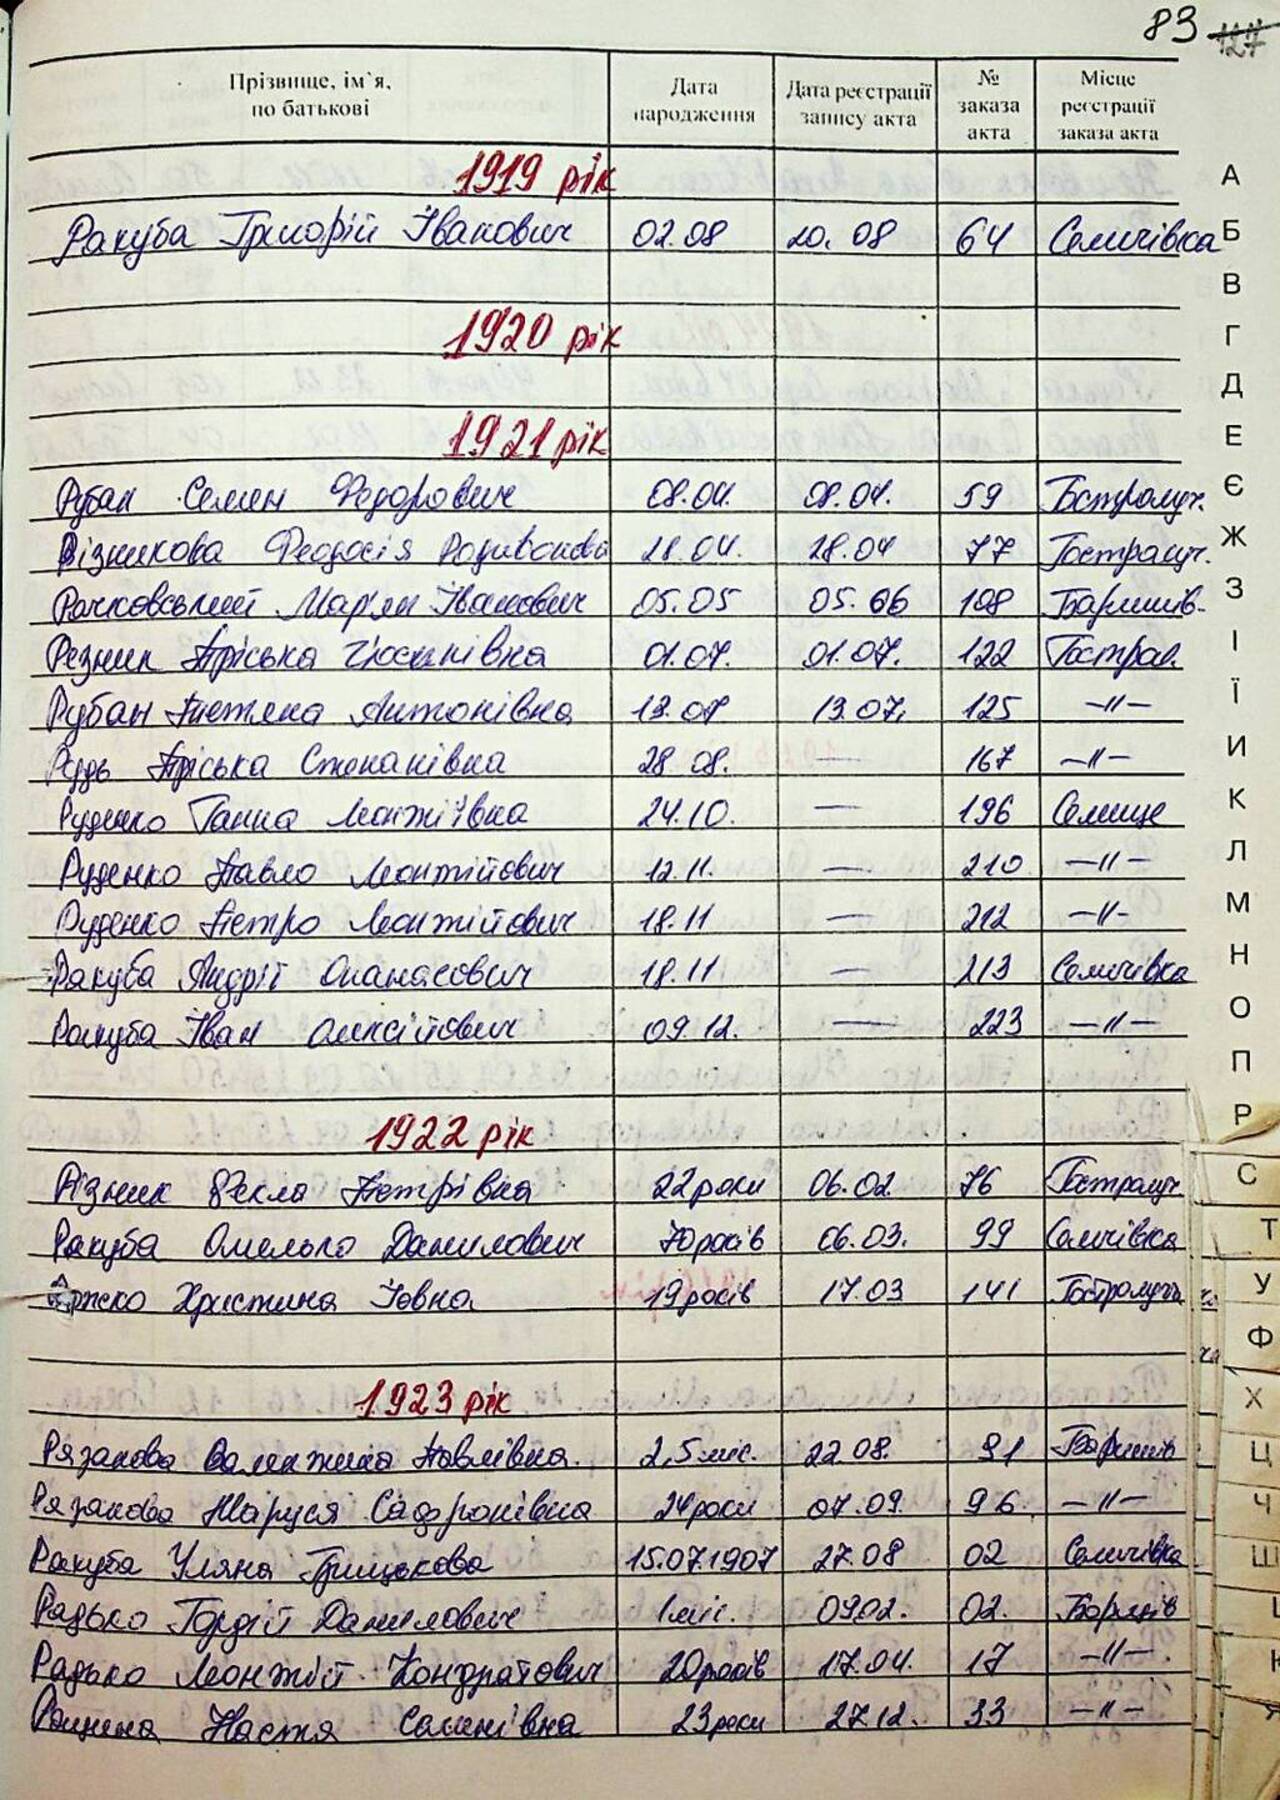 83 127
Прізвище, ім`я, по батькові Дата народження Дата реєстрації запису акта № заказа акта Місце реєстрації заказа акта
1919 рік
Ракуба Григорій Іванович 02.08 20.08 64 Селичівка
1920 рік
1921 рік
Рубан Семен Федорович 08.04. 08.04. 59 Гостролуч.
Різникова Феодосія Родивонова 28.04. 28.04 77 Гостролуч.
Рачковський Мар'ян Іванович 05.05 05.06 108 Баришів.
Резник Пріська Йосипівна 01.07. 01.07. 122 Гострол.
Рубан Тетяна Антонівна 13.07 13.07. 125 -"-
Рудь Пріська Степанівна 28.08. — 167 -"-
Руденко Ганна Леонтіївна 24.10. — 196 Селище
Руденко Павло Леонтійович 12.11. — 210 -"-
Руденко Петро Леонтійович 18.11 — 212 -"-
Ракуба Андрій Опанасович 18.11 — 213 Селичівка
Ракуба Іван Олексійович 09.12. — 223 -"-
1922 рік
Різник Фекла Петрівна 22 роки 06.02. 76 Гостролуч
Ракуба Омелько Данилович 70 років 06.03. 99 Селичівка
Христина Іовна 19 років 17.03 141 Гостролуч
1923 рік
Рязанова Валентина Павлівна. 2,5 міс. 22.08. 91 Баришів
Рязанова Маруся Садронівна 24 роки 07.09. 96. -"-
Ракуба Уляна Грицькова 15.07.1907 27.08 02 Селичівка
Радько Гордій Данилович 1 міс. 09.02. 02. Баришів
Радько Леонтій Кондратович 20 років 17.04. 17 -"-
Настя 23 роки 27.12. 33 -"-
А
Б
В
Г
Д
Е
Є
Ж
З
І
Ї
И
К
Л
М
Н
О
П
Р
С
Т
У
Ф
Х
Ц
Ч
Ш
Я